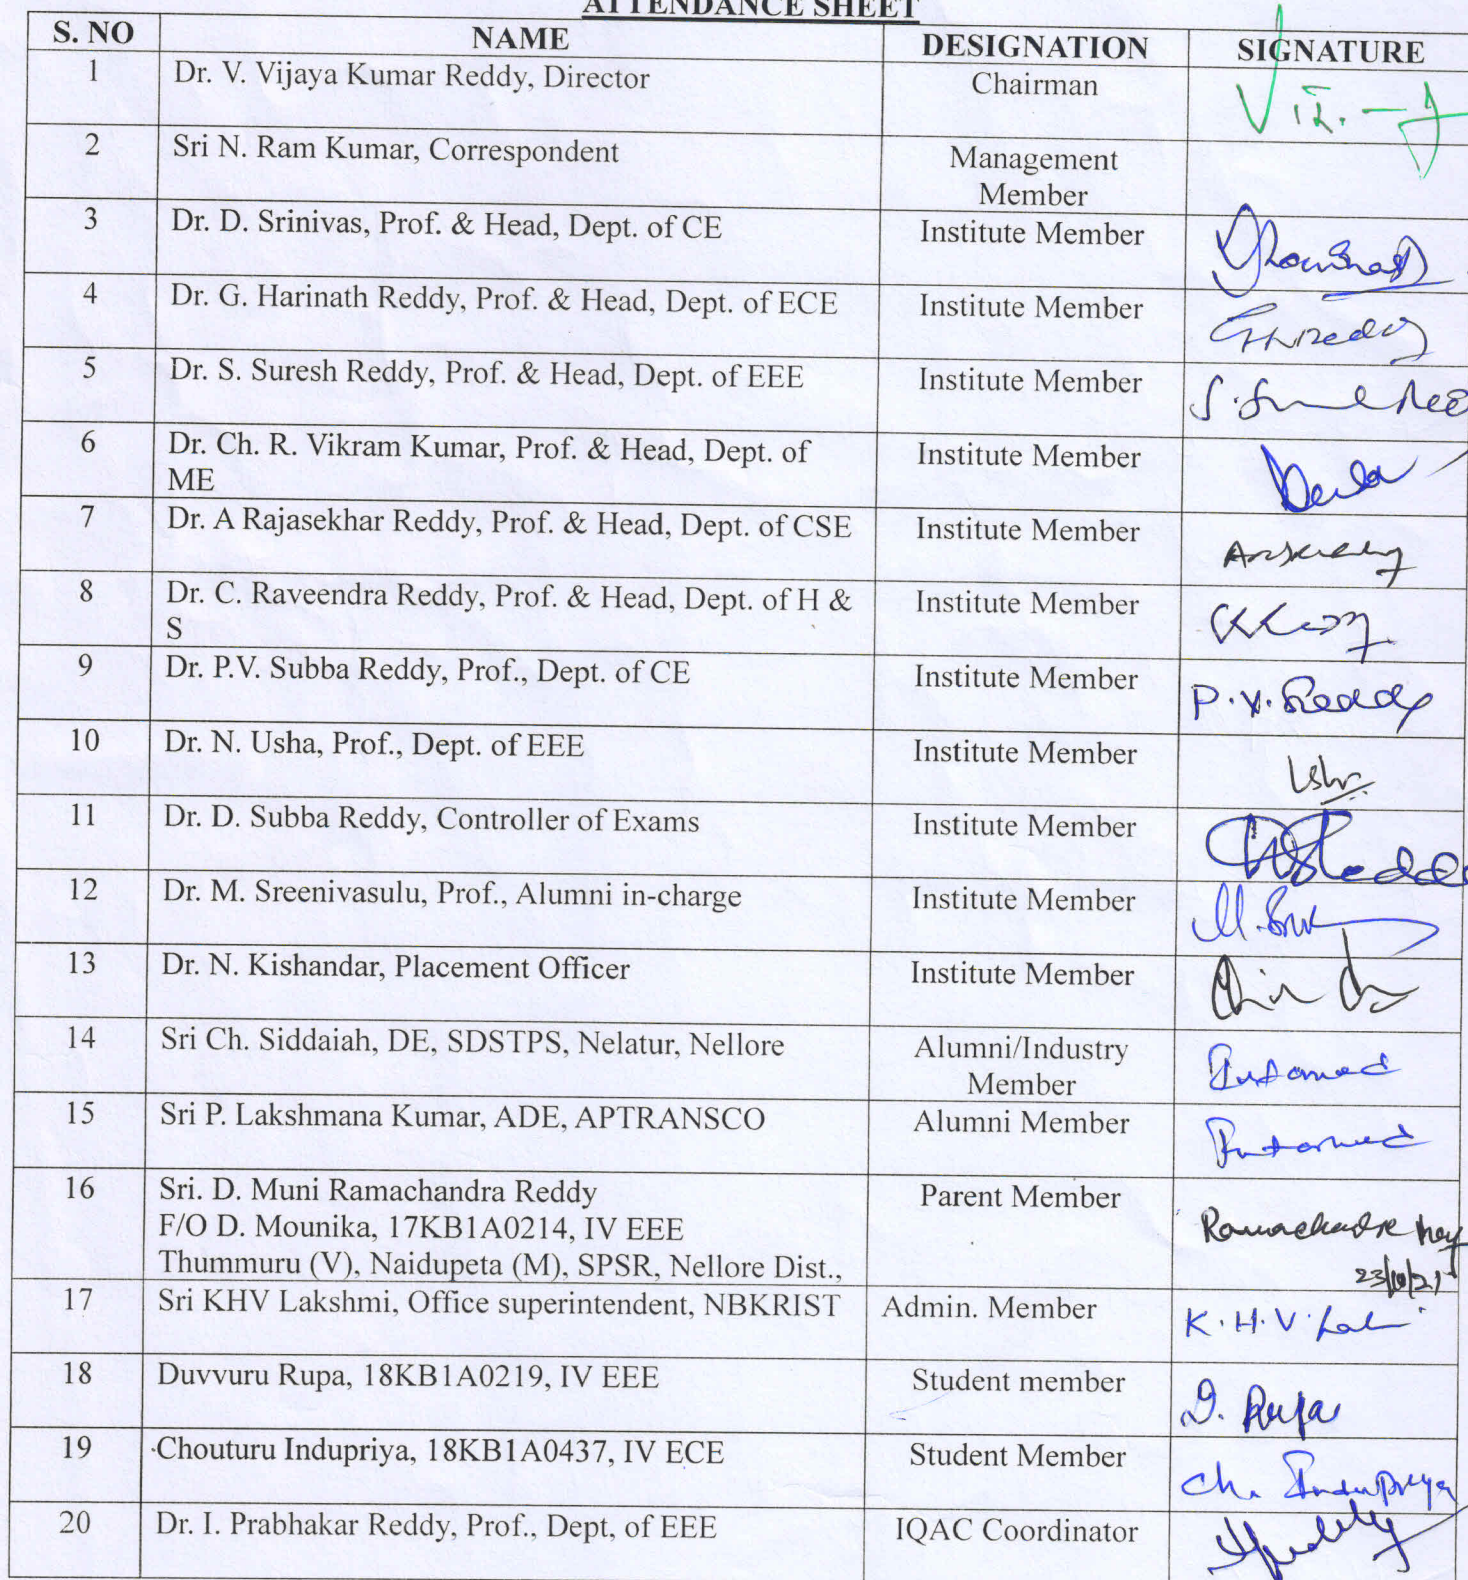 ATTENDANCE SHEET
S. NO NAME DESIGNATION SIGNATURE
1 Dr. V. Vijaya Kumar Reddy, Director Chairman
2 Sri N. Ram Kumar, Correspondent Management
Member
3 Dr. D. Srinivas, Prof. & Head, Dept. of CE Institute Member
4 Dr. G. Harinath Reddy, Prof. & Head, Dept. of ECE Institute Member
5 Dr. S. Suresh Reddy, Prof. & Head, Dept. of EEE Institute Member
6 Dr. Ch. R. Vikram Kumar, Prof. & Head, Dept. of Institute Member
ME
7 Dr. A Rajasekhar Reddy, Prof. & Head, Dept. of CSE Institute Member
8 Dr. C. Raveendra Reddy, Prof. & Head, Dept. of H & Institute Member
S
9 Dr. P.V. Subba Reddy, Prof., Dept. of CE Institute Member P.V. Reddy
10 Dr. N. Usha, Prof., Dept. of EEE Institute Member
11 Dr. D. Subba Reddy, Controller of Exams Institute Member
12 Dr. M. Sreenivasulu, Prof., Alumni in-charge Institute Member
13 Dr. N. Kishandar, Placement Officer Institute Member
14 Sri Ch. Siddaiah, DE, SDSTPS, Nelatur, Nellore Alumni/Industry
Member
15 Sri P. Lakshmana Kumar, ADE, APTRANSCO Alumni Member
16 Sri. D. Muni Ramachandra Reddy Parent Member
F/O D. Mounika, 17KB1A0214, IV EEE
Thummuru (V), Naidupeta (M), SPSR, Nellore Dist.,
17 Sri KHV Lakshmi, Office superintendent, NBKRIST Admin. Member K.H.V.
18 Duvvuru Rupa, 18KB1A0219, IV EEE Student member D. Rupa
19 Chouturu Indupriya, 18KB1A0437, IV ECE Student Member Ch. Indupriya
20 Dr. I. Prabhakar Reddy, Prof., Dept, of EEE IQAC Coordinator